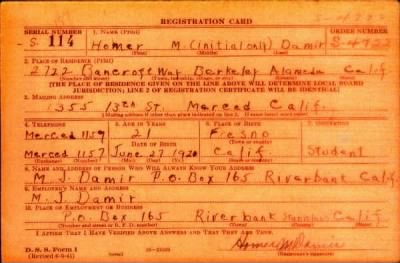 REGISTRATION CARD
SERIAL NUMBER
1. NAME (Print)
ORDER NUMBER
S- 114
Homer M. (initial only) Damir
S-4722
(First) (Middle) (Last)
2. PLACE OF RESIDENCE (Print)
2722 Bancroft Way Berkeley Alameda Calif
[THE PLACE OF RESIDENCE GIVEN ON THE LINE ABOVE WILL DETERMINE LOCAL BOARD
JURISDICTION; LINE 2 OF REGISTRATION CERTIFICATE WILL BE IDENTICAL]
3. MAILING ADDRESS
1355 13th St. Merced Calif.
[Mailing address if other than place indicated on line 2. If same insert word same]
4. TELEPHONE
5. AGE IN YEARS
6. PLACE OF BIRTH
7. OCCUPATION
Merced 1159
21
Fresno
DATE OF BIRTH
Merced 1157 June 27 1920 Calif Student
8. NAME AND ADDRESS OF PERSON WHO WILL ALWAYS KNOW YOUR ADDRESS
M. J. Damir P.O. Box 165 Riverbank Calif.
9. EMPLOYER'S NAME AND ADDRESS
M. J. Damir
10. PLACE OF EMPLOYMENT OR BUSINESS
P.O. Box 165 Riverbank Stanislaus Calif
I AFFIRM THAT I HAVE VERIFIED ABOVE ANSWERS AND THAT THEY ARE TRUE.
D. S. S. Form 1
Homer M Damir